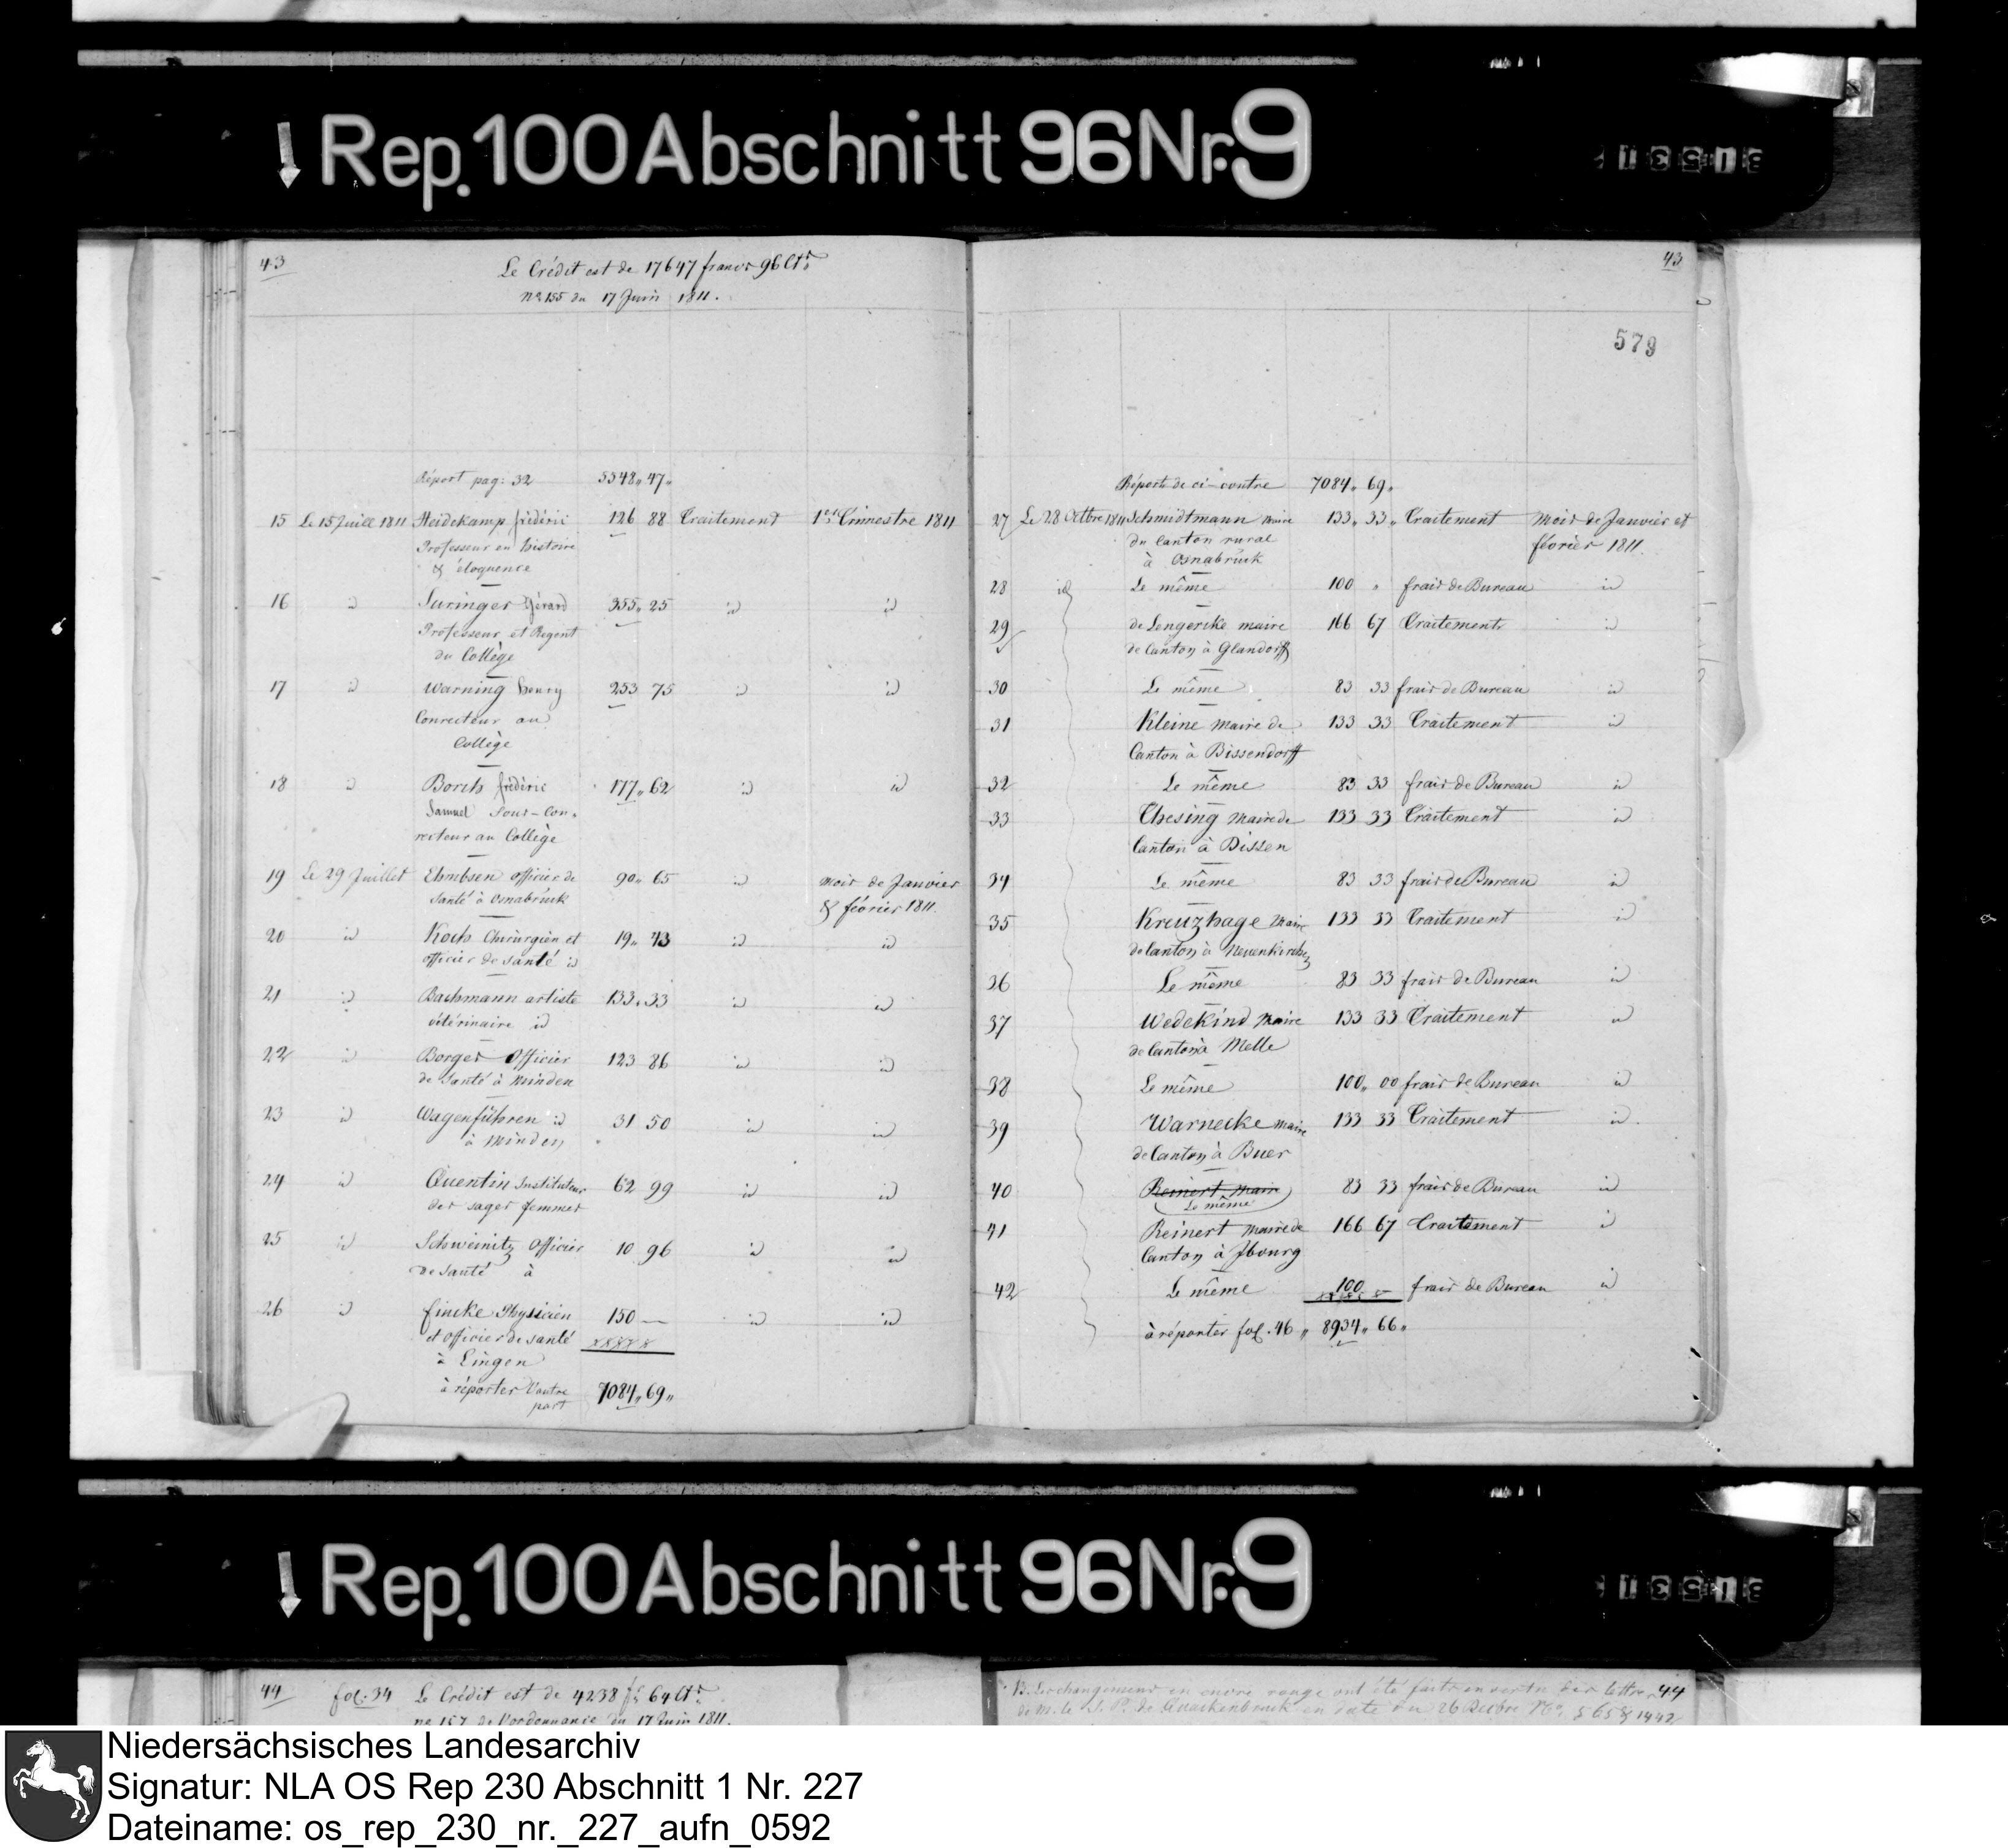 Rep. 100 Abschnitt 96 Nr. 9
43
Le Crédit est de 17647 francs 96 Cts
No 155 du 17 Juin 1811.
Réport pag: 32 5548,, 47,,
15 Le 15 Juill 1811 Heidekamp frédéric 126 88 Traitement 1er Trimestre 1811
Professeur en histoire
& éloquence
16 id Suringer Gérard 355,, 25 id id
Professeur et Regent
du Collège
17 id Warning henry 253 75 id id
Conrecteur au
Collège
18 id Borch frédéric 177,, 62 id id
Samuel Sous-Con-
recteur au Collège
19 Le 29 Juillet Ebmbsen officier de 90,, 65 id mois de Janvier
santé à Osnabruck & février 1811.
20 id Koch Chirurgien et 19,, 43 id id
officier de santé id
21 id Bachmann artiste 133,, 33 id id
vétérinaire id
22 id Borges Officier 123 86 id id
de santé à Minden
23 id Wagenführen id 31 50 id id
à Minden
24 id Quentin Instituteur 62 99 id id
des sages femmes
25 id Schweinitz Officier 10 96 id id
de santé à
26 id Fincke Physicien 150 — id id
et officier de santé
à Lingen
à réporter l'autre 7084,, 69,,
part
43
579
Réport de ci-contre 7084,, 69,,
27 Le 28 Octbre 1811 Schmidtmann maire 133,, 33,, Traitement Mois de Janvier et
du Canton rural février 1811.
à Osnabruck
28 id Le même 100 " frais de Bureau id
29 de Lengerike maire 166 67 Traitement id
de Canton à Glandorff
30 Le même 83 33 frais de Bureau id
31 Kleine maire de 133 33 Traitement id
Canton à Bissendorff
32 Le même 83 33 frais de Bureau id
33 Thesing maire de 133 33 Traitement id
Canton à Dissen
34 Le même 83 33 frais de Bureau id
35 Kreuzhage maire 133 33 Traitement id
de Canton à Neuenkirchen
36 Le même 83 33 frais de Bureau id
37 Wedekind maire 133 33 Traitement id
de Canton à Melle
38 Le même 100,, 00 frais de Bureau id
39 Warnecke maire 133 33 Traitement id
de Canton à Buer
40 Reinert maire 83 33 frais de Bureau id
Le même
41 Reinert maire de 166 67 Traitement id
Canton à Jbourg
42 Le même 100 — frais de Bureau id
à réporter fol. 46 ,, 8934,, 66,,
Rep. 100 Abschnitt 96 Nr. 9
44 fol: 34 Le Crédit est de 4238 fs 64 Cts
no 157 de l'ordonnance du 17 Juin 1811.
44
changement en encre rouge ont été faits en vertu des lettres
de M. le S. P. de Quackenbruck en date du 26 No.
Niedersächsisches Landesarchiv
Signatur: NLA OS Rep 230 Abschnitt 1 Nr. 227
Dateiname: os_rep_230_nr._227_aufn_0592